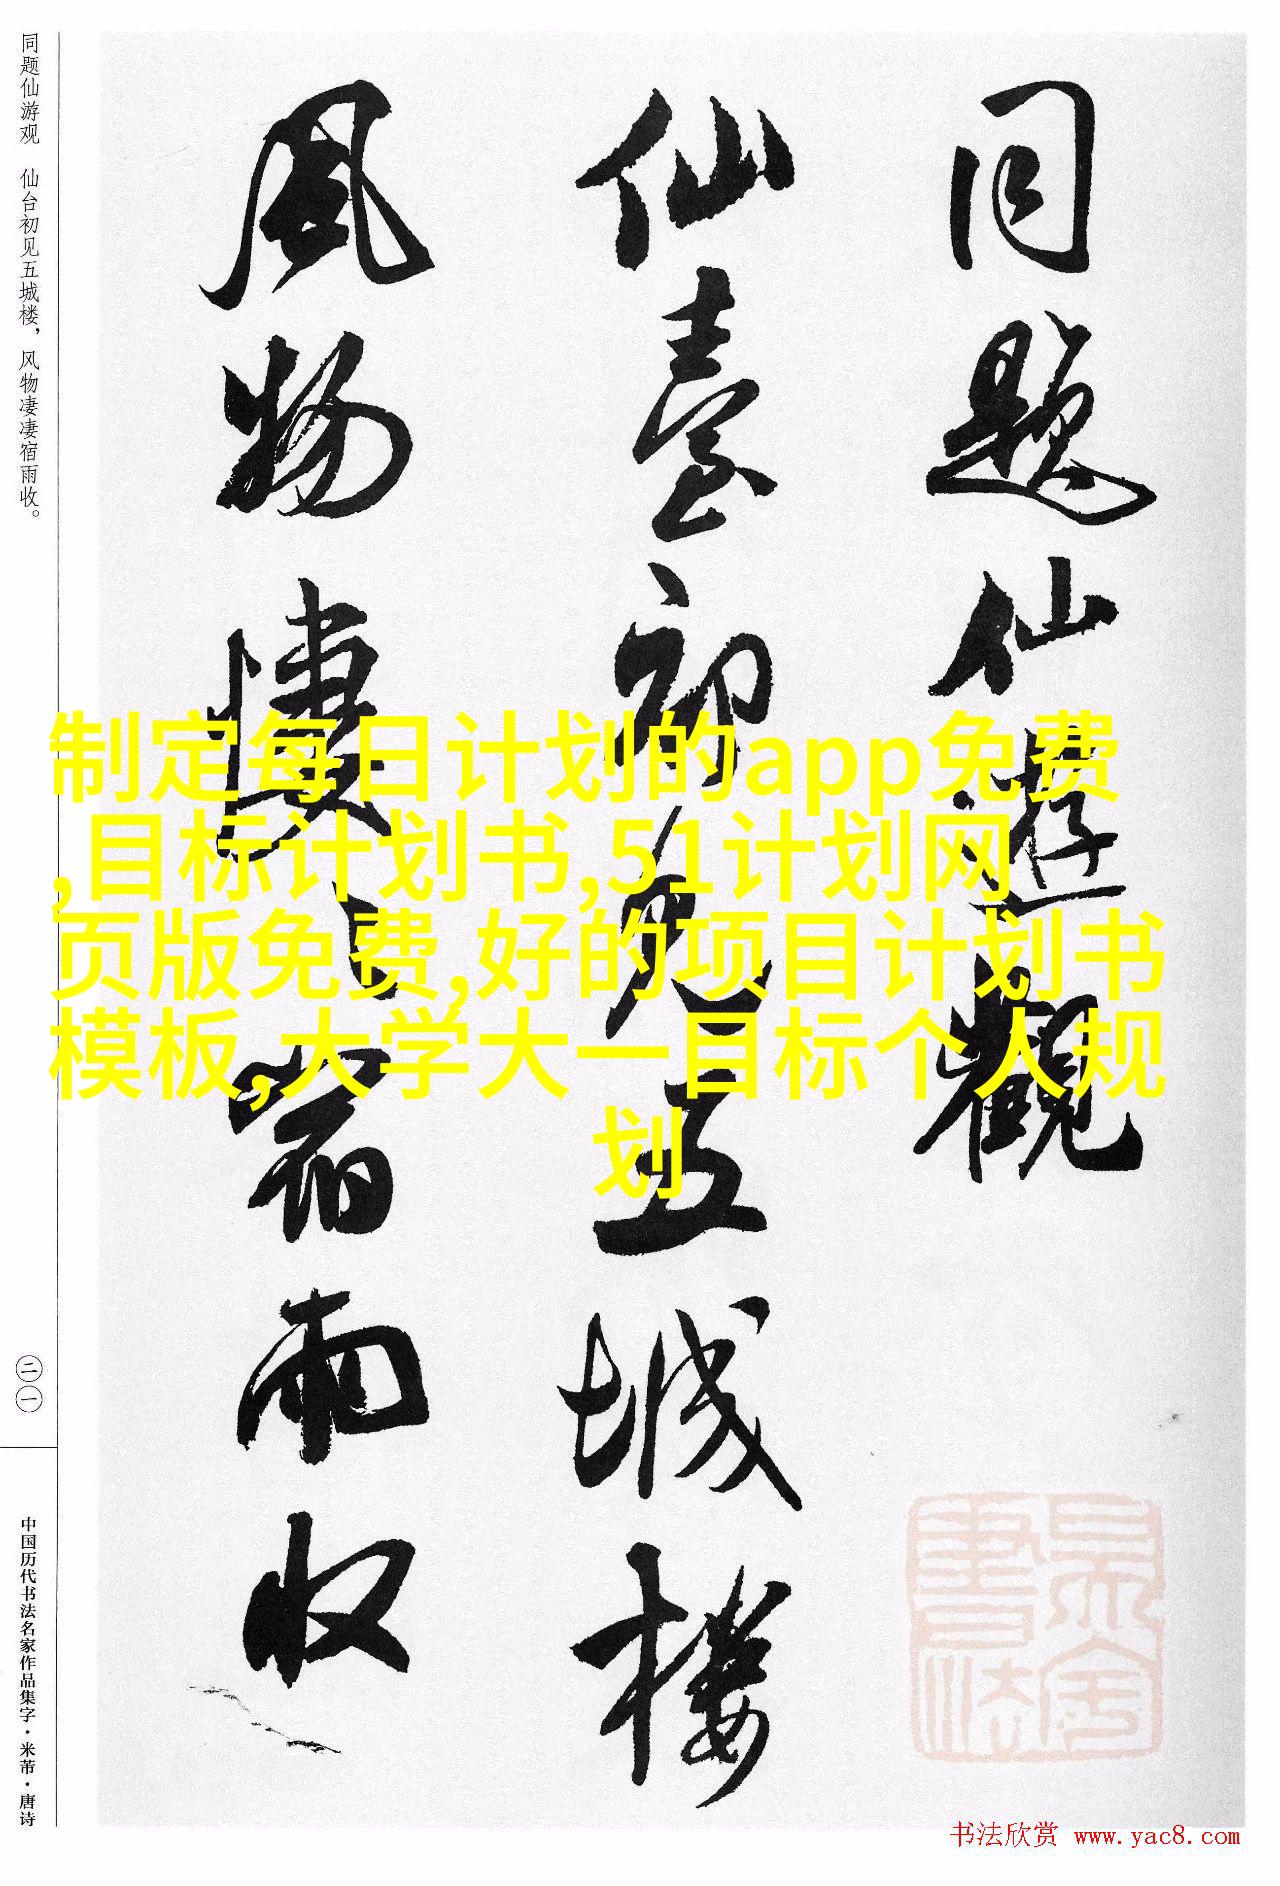 同題仙遊觀
仙臺初見五城樓
風物悽々宿雨收
同题仙游观 仙台初见五城楼，风物凄凄宿雨收。
二一
中国历代书法名家作品集字·米芾·唐诗
制定每日计划的app免费
,目标计划书,51计划网
页版免费,好的项目计划书
模板,大学大一目标个人规
划
书法欣赏 www.yac8.com